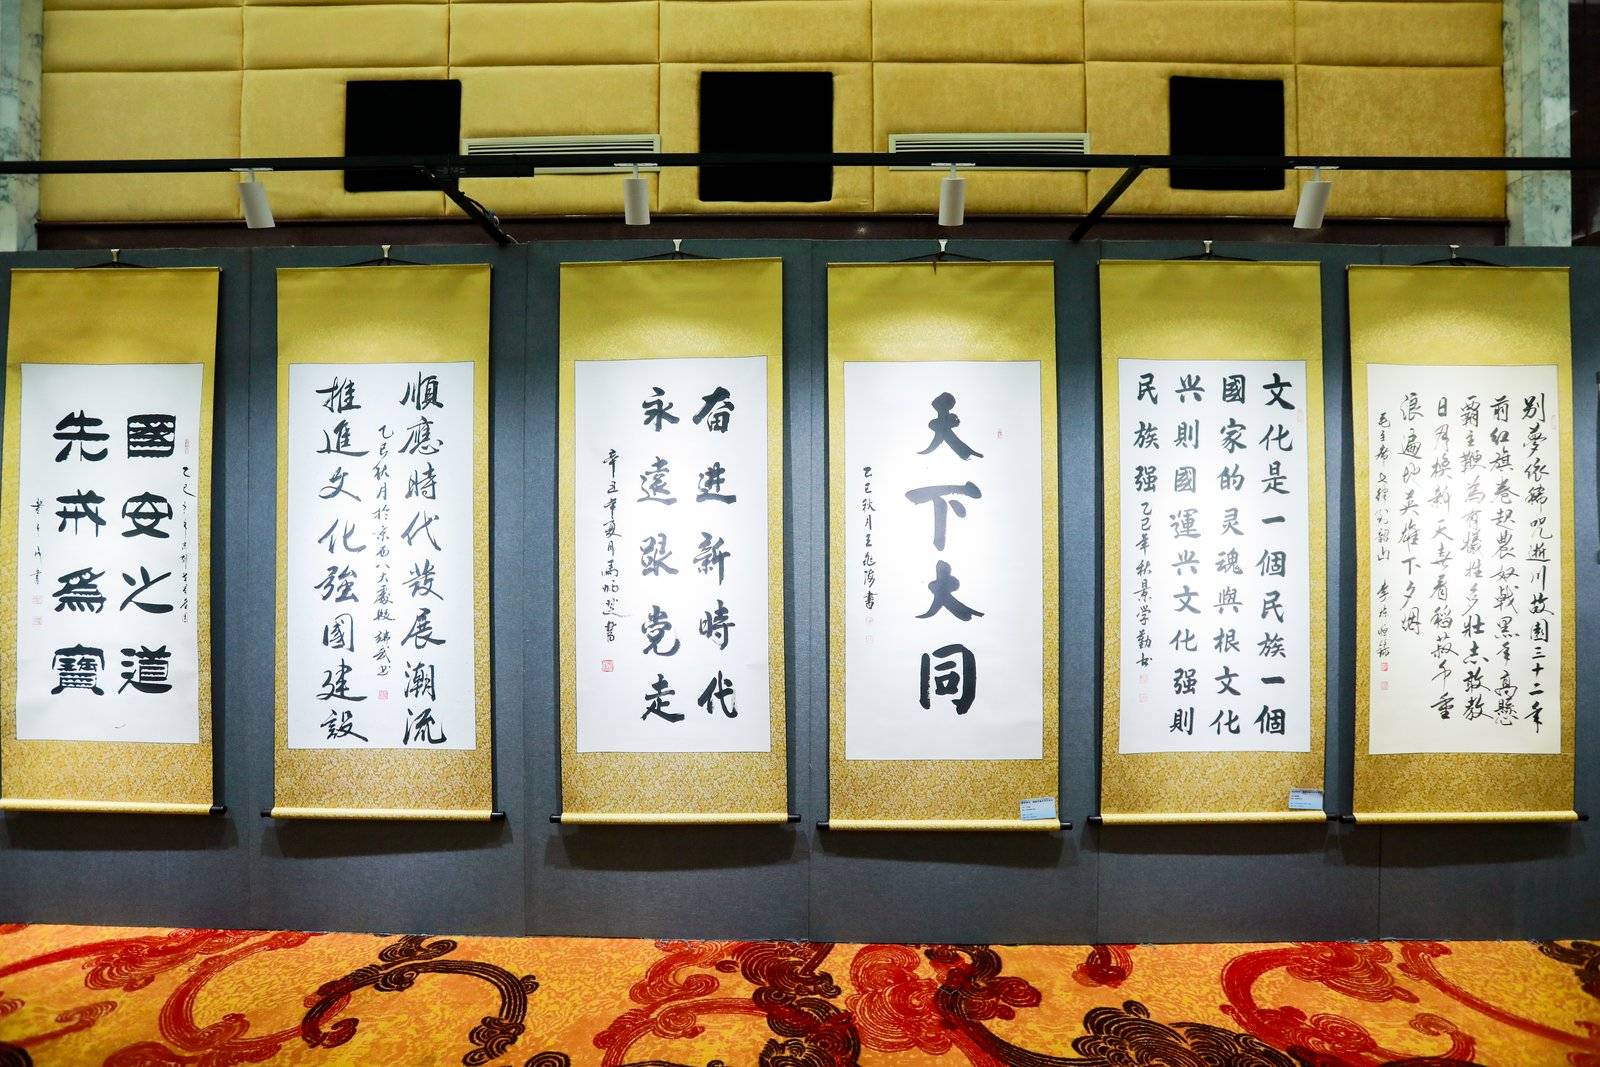 國安之道
先戒爲寶
順應時代發展潮流
推進文化強國建設
乙巳秋月於京西八大處
奋进新時代
永遠跟党走
辛丑年夏月
天下大同
乙巳秋月王兆海書
文化是一個民族一個
國家的灵魂與根文化
兴則國運兴文化强則
民族强 乙巳年秋景学勤书
别夢依稀咒逝川故園三十二年
前红旗卷起農奴戟黑手高懸
霸主鞭為有犧牲多壮志敢教
日月换新天喜看稻菽千重
浪遍地英雄下夕烟
毛主席七律到韶山